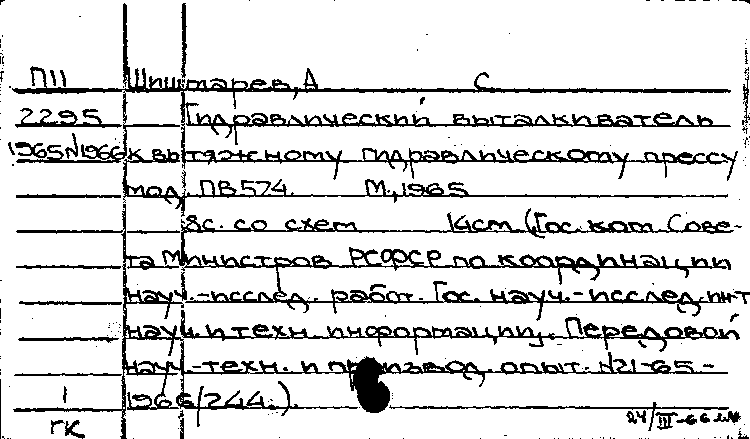 П11 Шиштарев, А С
2295 Гидравлический выталкиватель
1965N1966 к вытяжному гидравлическому прессу
мод. ПВ574. М., 1965
8с. со схем 14см (Гос. ком. Сове-
та Министров РСФСР по координации
науч.-исслед. работ. Гос. науч.-исслед. ин-т
науч. и техн. информации. Передовой
науч.-техн. и производ. опыт. N21-65-
1 1966/244.).
ГК 24/III-66